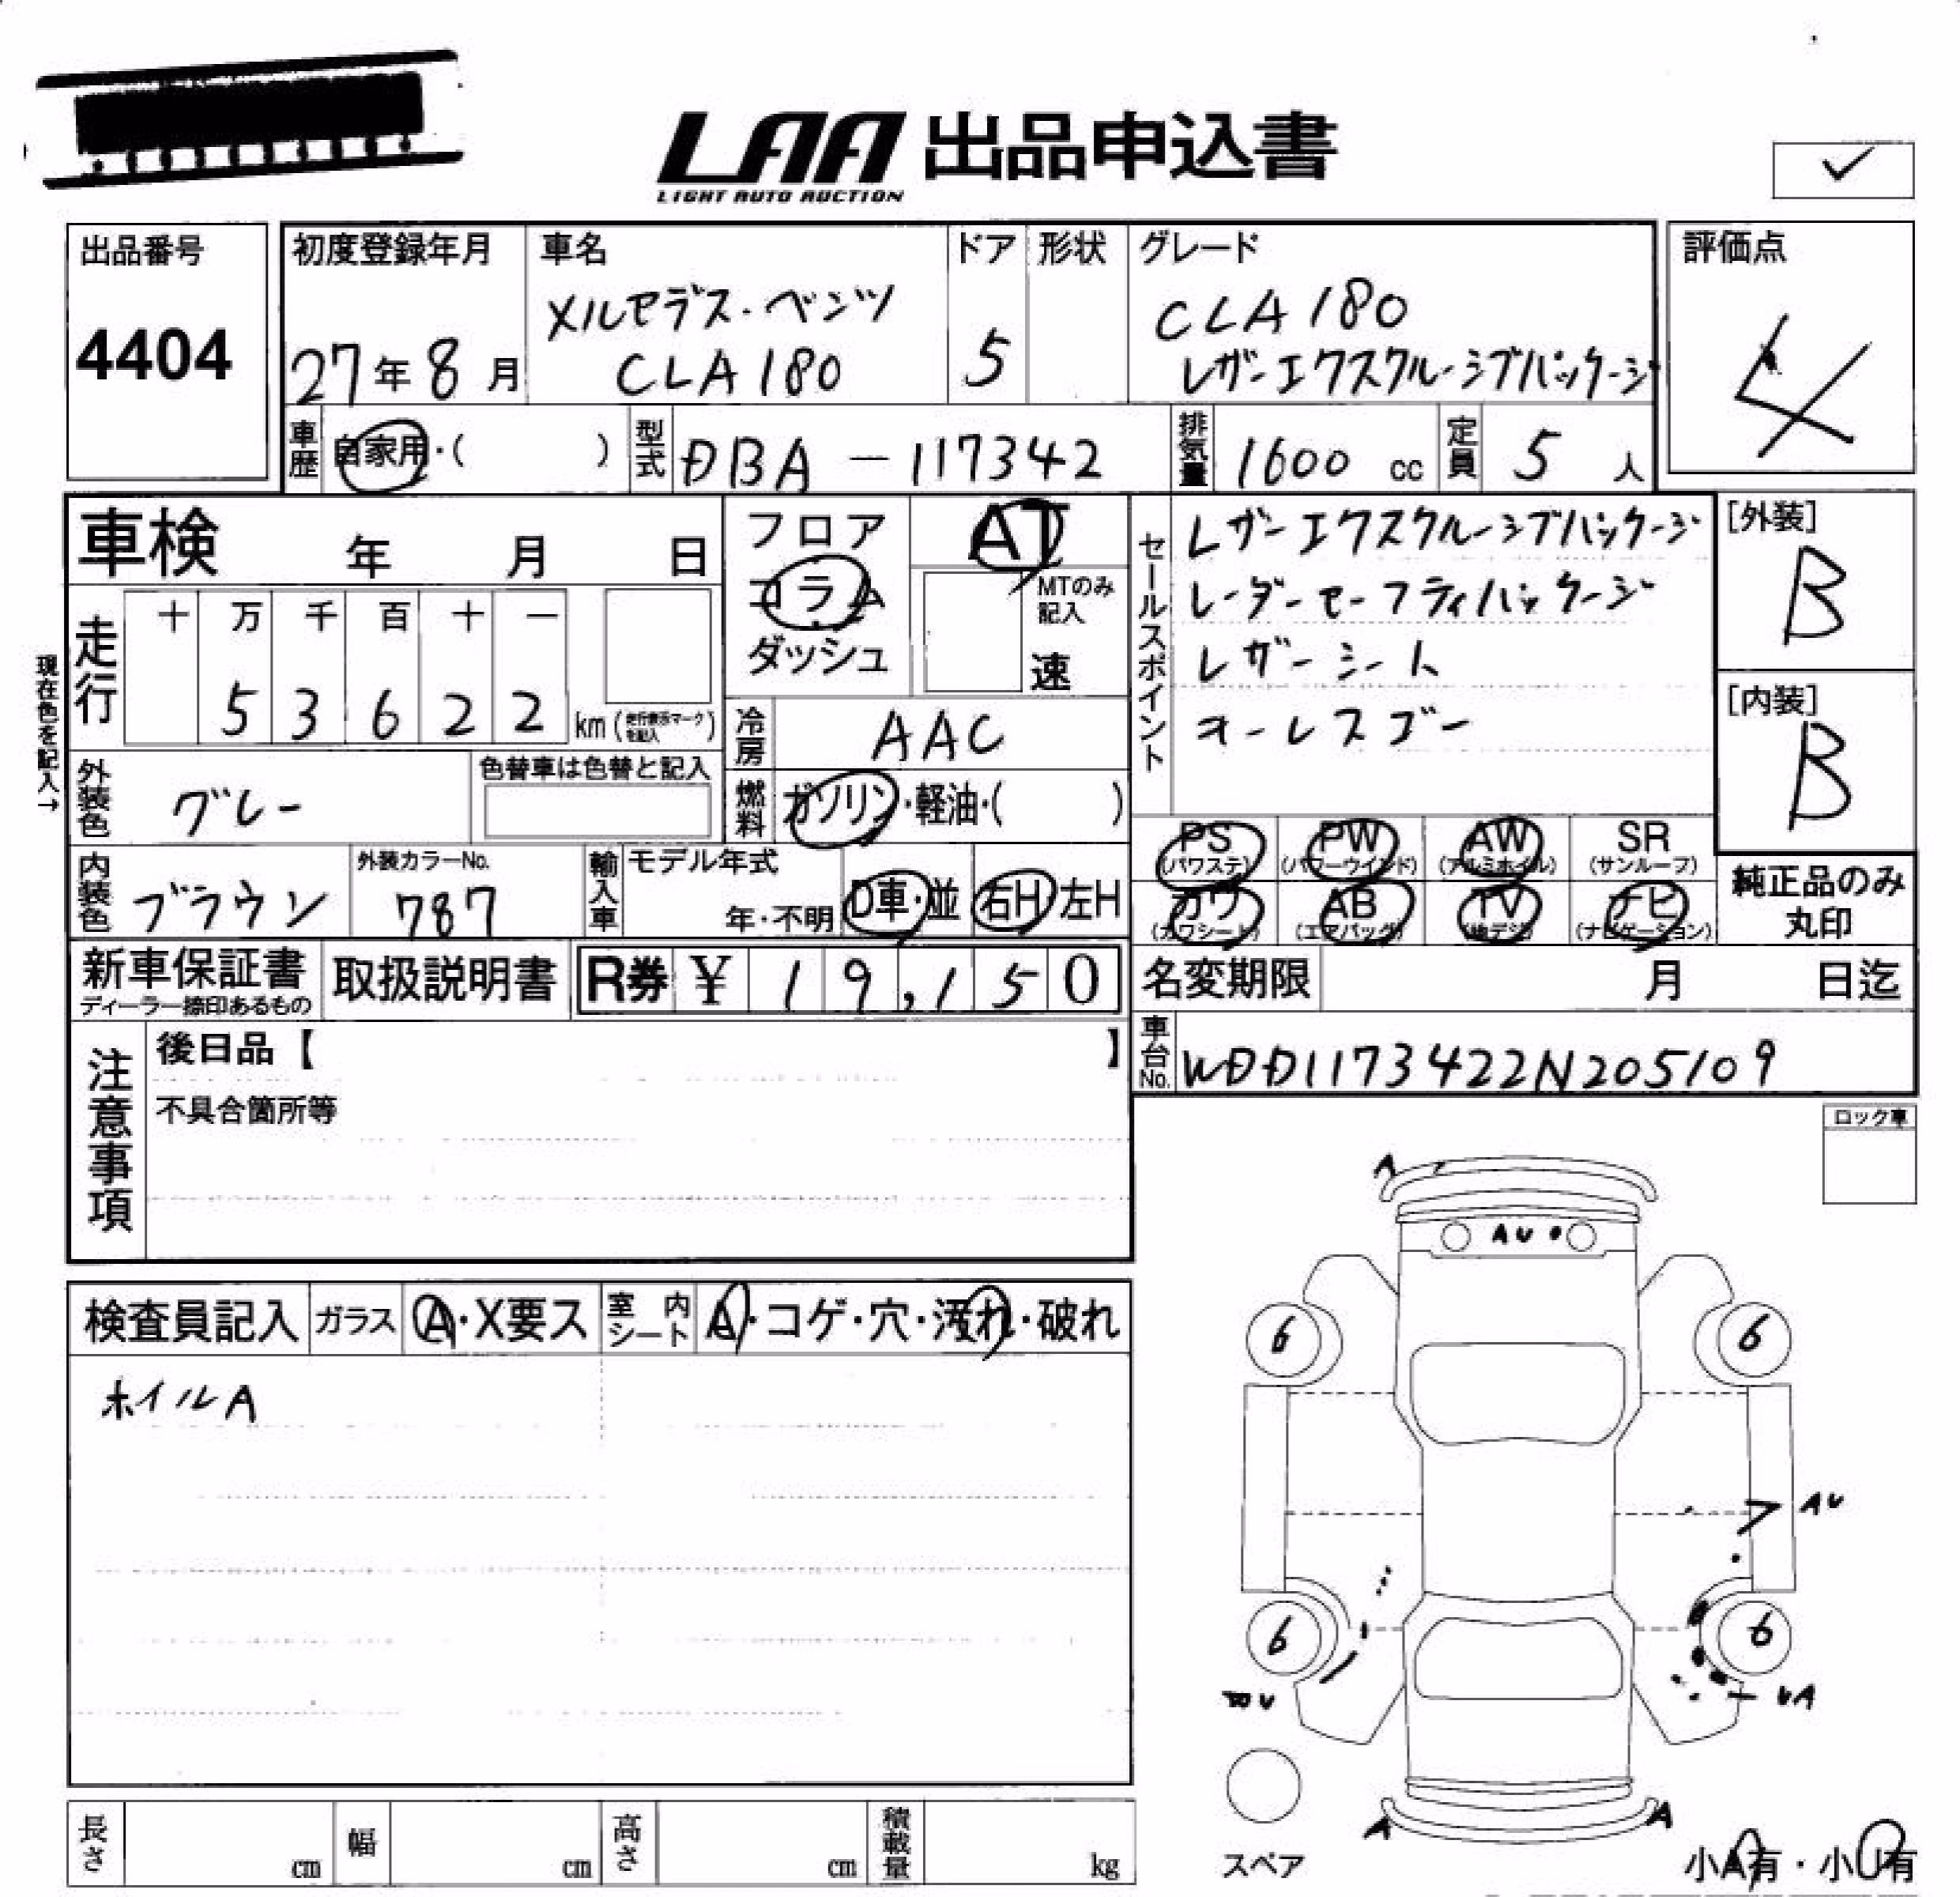 LAA 出品申込書
LIGHT AUTO AUCTION
出品番号
4404
初度登録年月
27年8月
車名
メルセデス・ベンツ
CLA180
ドア
5
形状
グレード
CLA180
レザーエクスクルーシブパッケージ
評価点
4
車歴
自家用・( )
型式
DBA-117342
排気量
1600 cc
定員
5 人
車検 年 月 日
現在色を記入→
走行
十 万 千 百 十 一
5 3 6 2 2 km (走行表示マークを記入)
フロア
コラム
ダッシュ
AT
MTのみ
記入
速
冷房
AAC
燃料
ガソリン・軽油・( )
外装色
グレー
色替車は色替と記入
内装色
ブラウン
外装カラーNo.
787
輸入車
モデル年式
年・不明
D車・並
右H 左H
セールスポイント
レザーエクスクルーシブパッケージ
レーダーセーフティパッケージ
レザーシート
キーレスゴー
[外装]
B
[内装]
B
PS
(パワステ)
PW
(パワーウインド)
AW
(アルミホイル)
SR
(サンルーフ)
カワ
(カワシート)
AB
(エアバッグ)
TV
(地デジ)
ナビ
(ナビゲーション)
純正品のみ
丸印
新車保証書
ディーラー捺印あるもの
取扱説明書
R券 ¥ 19,150
名変期限 月 日迄
車台No.
WDD1173422N205109
注意事項
後日品【 】
不具合箇所等
ロック車
検査員記入
ガラス
A・X要ス
室内シート
A・コゲ・穴・汚れ・破れ
ホイルA
A
AU
6
6
AU
6
6
UA
A
A
スペア
小A有・小U有
長さ cm
幅 cm
高さ cm
積載量 kg